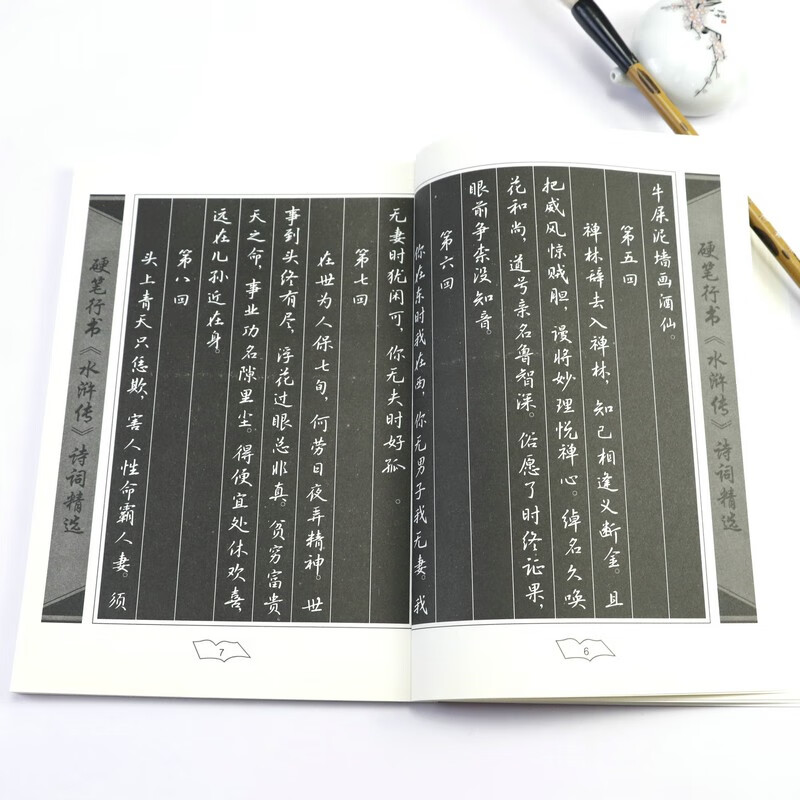 硬笔行书《水浒传》诗词精选
牛屎泥墙画酒仙。
第五回
禅林辞去入禅林,知己相逢义断金。且
把威风惊贼胆,谩将妙理悦禅心。绰名久唤
花和尚,道号亲名鲁智深。俗愿了时终证果,
眼前争奈没知音。
第六回
你在东时我在西,你无男子我无妻。我
6
无妻时犹闲可,你无夫时好孤 。
第七回
在世为人保七旬,何劳日夜弄精神。世
事到头终有尽,浮花过眼总非真。贫穷富贵
天之命,事业功名隙里尘。得便宜处休欢喜
远在儿孙近在身。
第八回
头上青天只恁欺,害人性命霸人妻。须
硬笔行书《水浒传》诗词精选
7